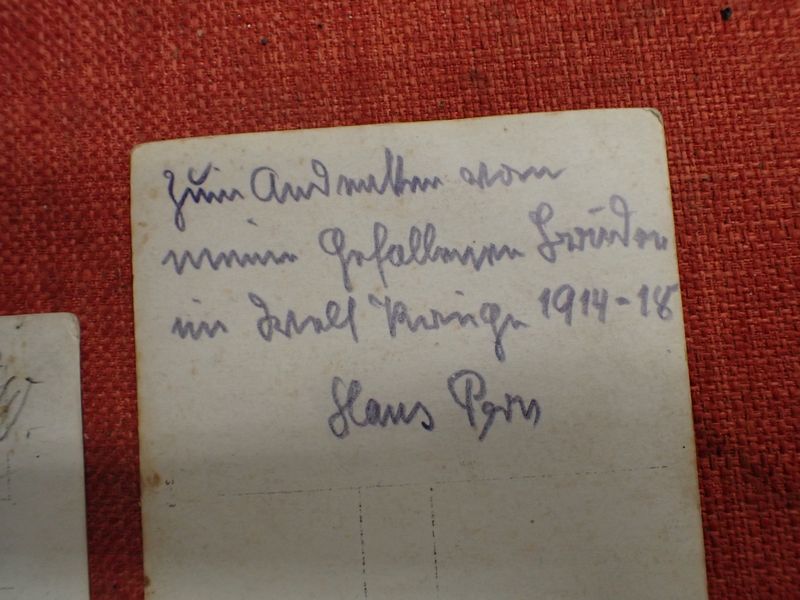 Zum Andenken von
meinen Gefallenen Brüder
im Welt Kriege 1914-18
Hans